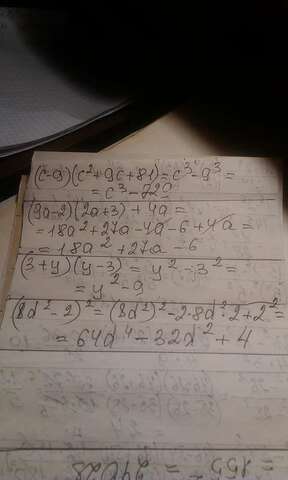 (c-9)(c²+9c+81)=c³-9³=
=c³-729
(9a-2)(2a+3)+4a=
=18a²+27a-4a-6+4a=
=18a²+27a-6
(3+y)(y-3)=y²-3²=
=y²-9
(8d²-2)²=(8d²)²-2·8d²·2+2²=
=64d⁴-32d²+4